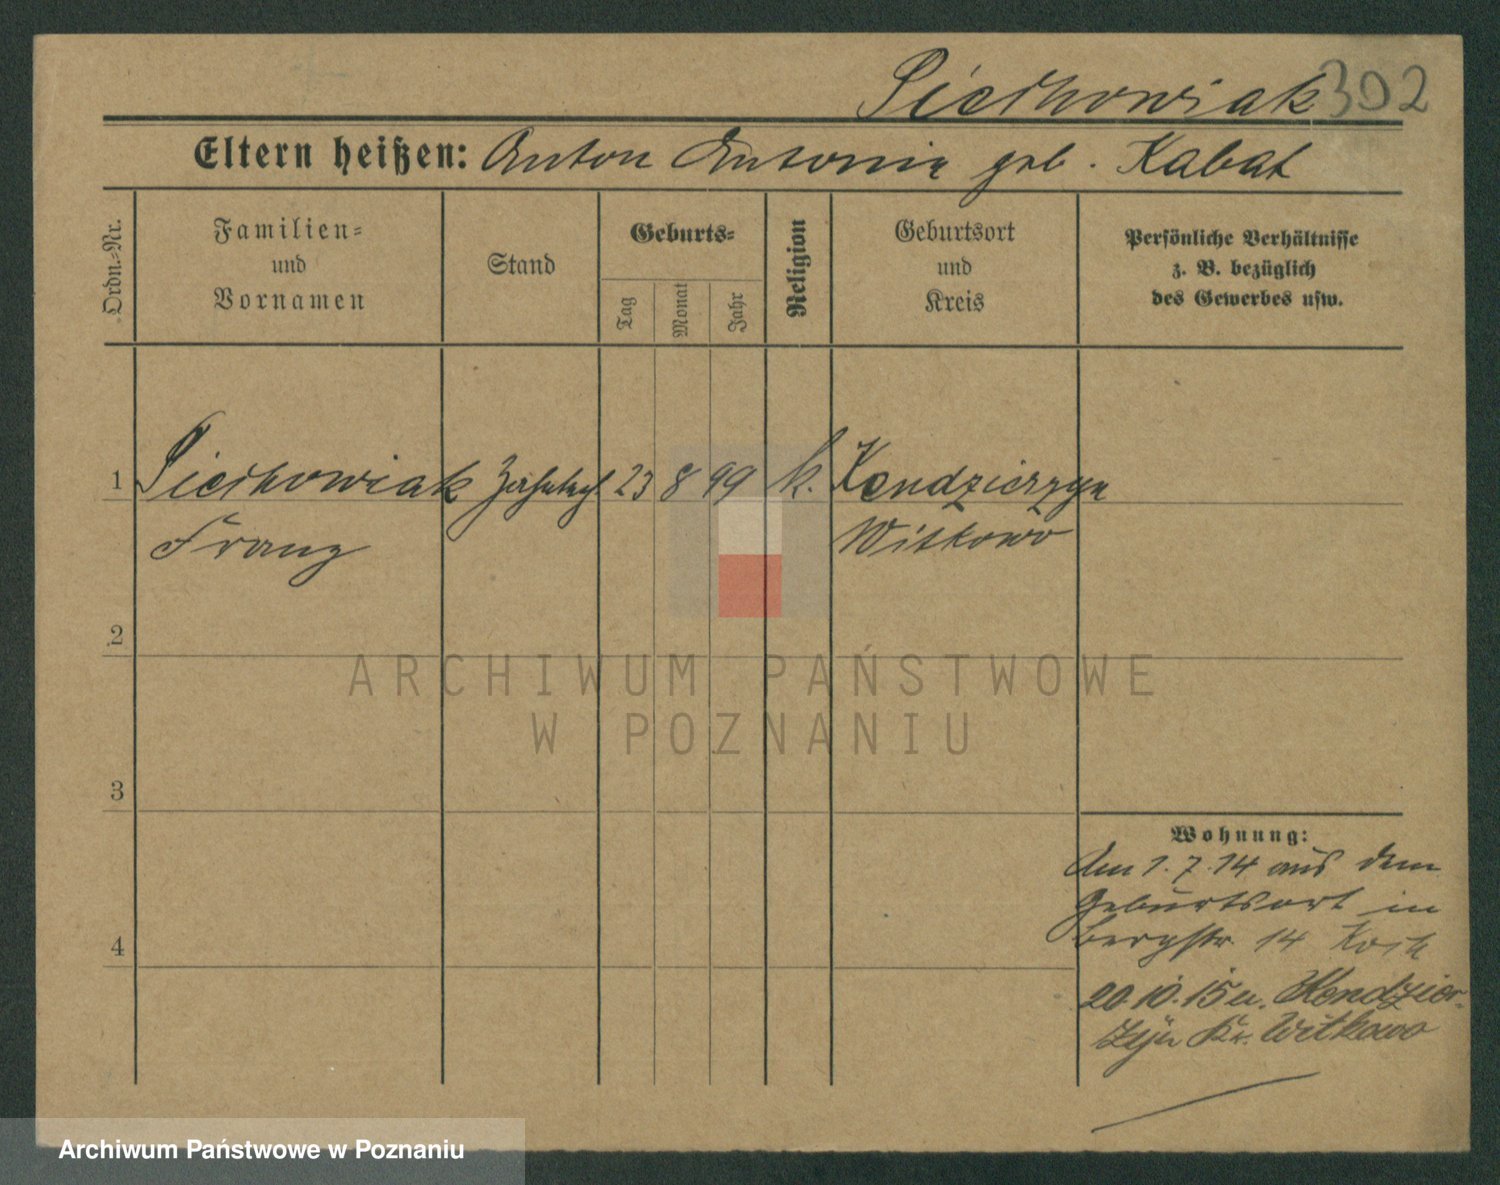 Piechowiak 302
Eltern heißen: Anton Antonie geb. Kabat
Ordn.-Nr.
Familien-
und
Vornamen
Stand
Geburts-
Tag
Monat
Jahr
Religion
Geburtsort
und
Kreis
Persönliche Verhältnisse
z. B. bezüglich
des Gewerbes usw.
1 Piechowiak 23 8 99 k. Kendzierzyn
Franz Witkowo
2
3
4
Wohnung:
Am 1.7.14 aus dem
Geburtsort in
Bergstr. 14
20.10.15 n. Kendzier-
zyn Kr. Witkowo
ARCHIWUM PAŃSTWOWE
W POZNANIU
Archiwum Państwowe w Poznaniu